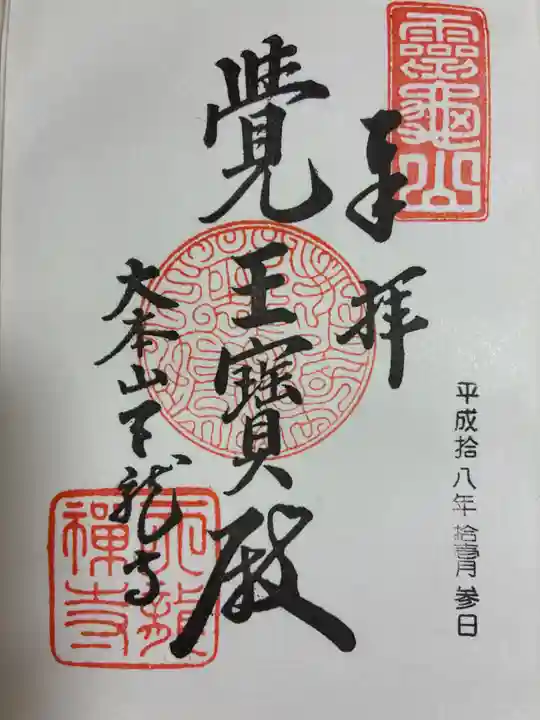 靈龜山
奉拝
平成拾八年拾壹月参日
覺王寳殿
大本山天龍寺
天龍禪寺